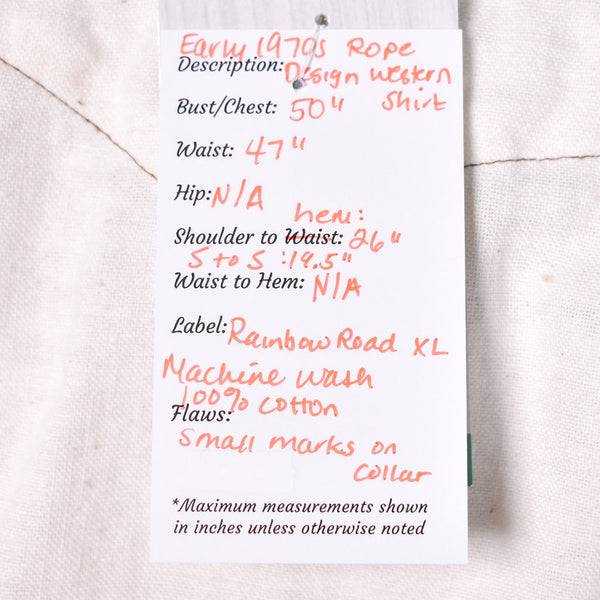 Early 1970s Rope
Description: Design Western
Shirt
Bust/Chest: 50"
Waist: 47"
Hip: N/A
hem:
Shoulder to Waist: 26"
S to S: 19.5"
Waist to Hem: N/A
Label: Rainbow Road XL
Machine wash
100% cotton
Flaws:
Small marks on
collar
*Maximum measurements shown
in inches unless otherwise noted